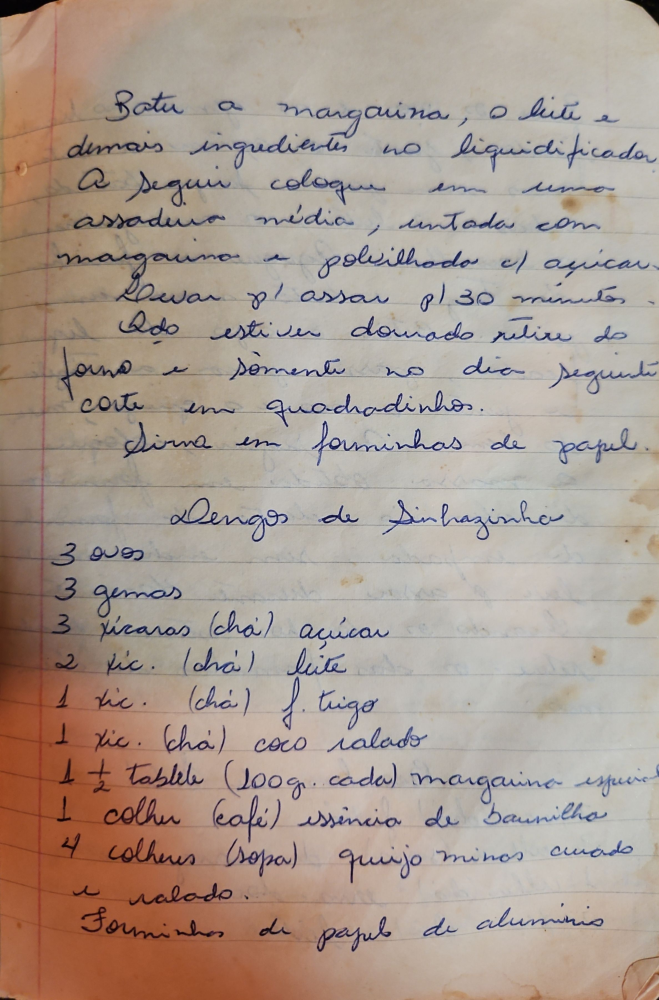 Bater a margarina, o leite e
demais ingredientes no liquidificador.
A seguir coloque em uma
assadeira média, untada com
margarina e polvilhada c/ açúcar.
Levar p/ assar p/ 30 minutos.
Qdo estiver dourado retire do
forno e sòmente no dia seguinte
corte em quadradinhos.
Sirva em forminhas de papel.
Dengos de Sinhazinha
3 ovos
3 gemas
3 xícaras (chá) açúcar
2 xic. (chá) leite
1 xic. (chá) f. trigo
1 xic. (chá) coco ralado
1 1/2 tablete (100g. cada) margarina especial
1 colher (café) essência de baunilha
4 colheres (sopa) queijo minas curado
e ralado.
Forminhas de papel de alumínio